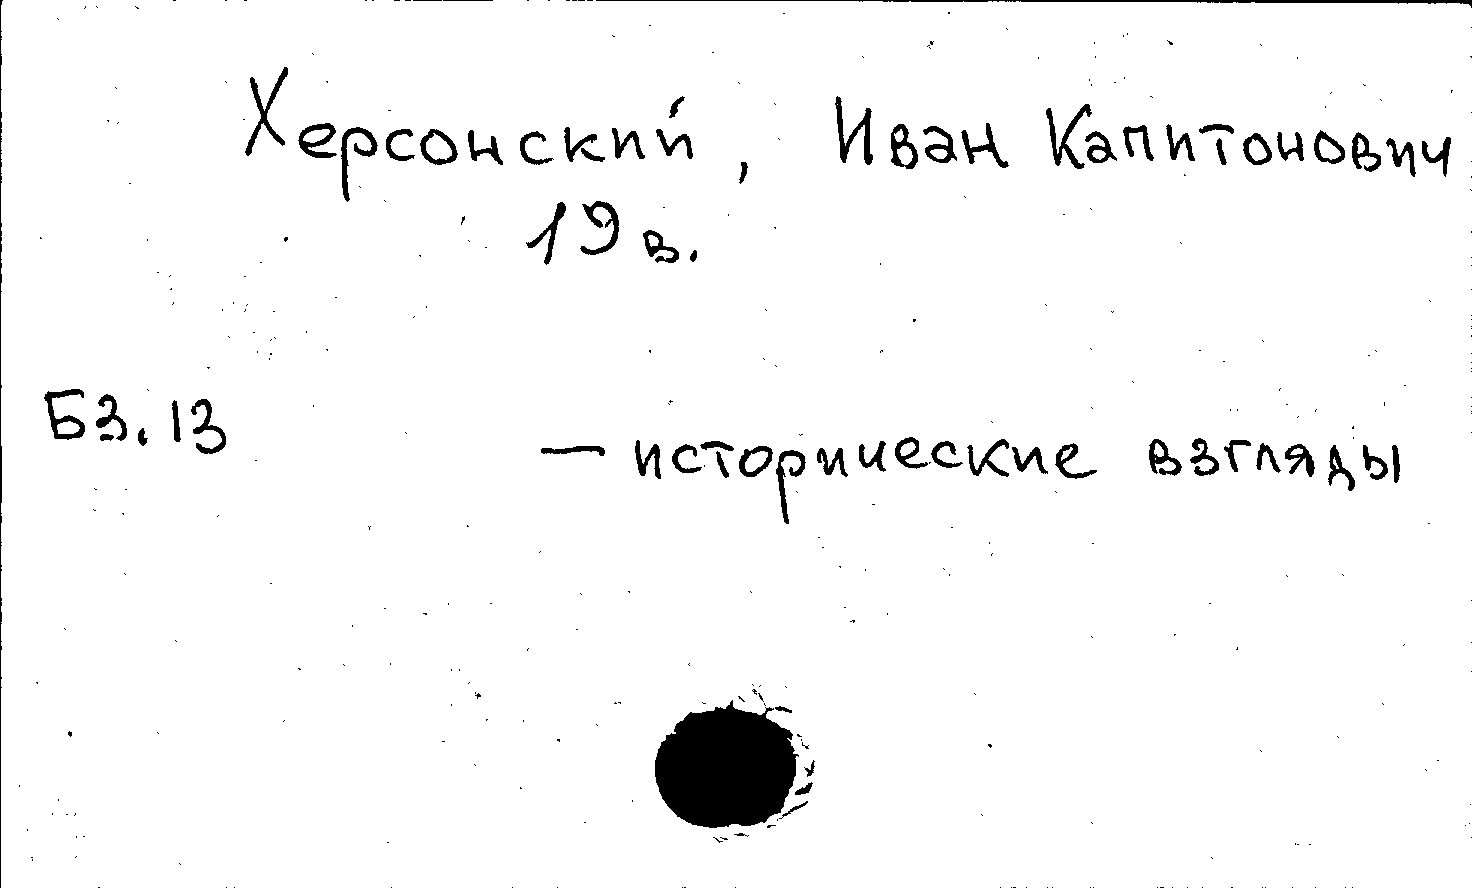 Херсонский, Иван Капитонович
19 в.
Б3.13
— исторические взгляды